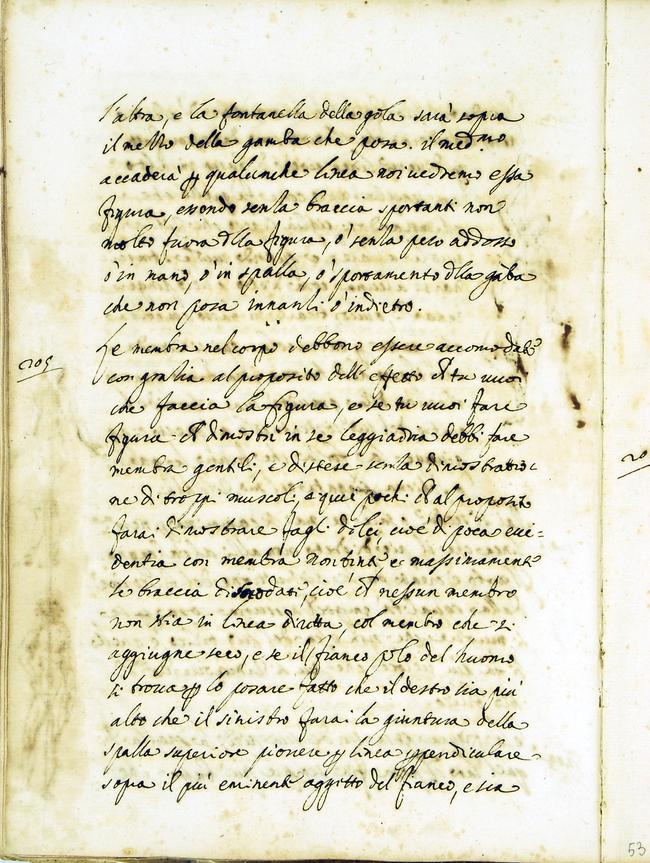 l'altra, e la fontanella della gola sarà sopra
il mezzo della gamba che posa. il med.mo
accaderà p qualunche linea noi vedremo essa
figura, essendo senza braccia sportanti non
molto fuora dlla figura, ò senza peso addosso
ò in mano, ò in spalla, ò sportamento dlla gãba
che non posa innanzi ò indietro.
205
Le membra nel corpo debbono essere accomodate
con grazia al proposito dell effetto ch tu vuoi
che faccia la figura, e se tu vuoi fare
figura ch dimostri in se leggiadria debbi fare
membra gentili, e distese senza dimostratio
ne di troppi muscoli, e quei pochi ch al proposito
farai dimostrare fagli dolci, cioè di poca evi-
dentia con membra non tinte e massimamente
le braccia disnodati, cioè ch nessun membro
non stia in linea diritta, col membro che si
aggiugne seco, e se il fianco polo del huomo
si trova p lo posare fatto che il destro sia più
alto che il sinistro farai la giuntura della
spalla superiore piovere p linea ppendiculare
sopra il più eminente aggitto del fianco, e sia
20
53